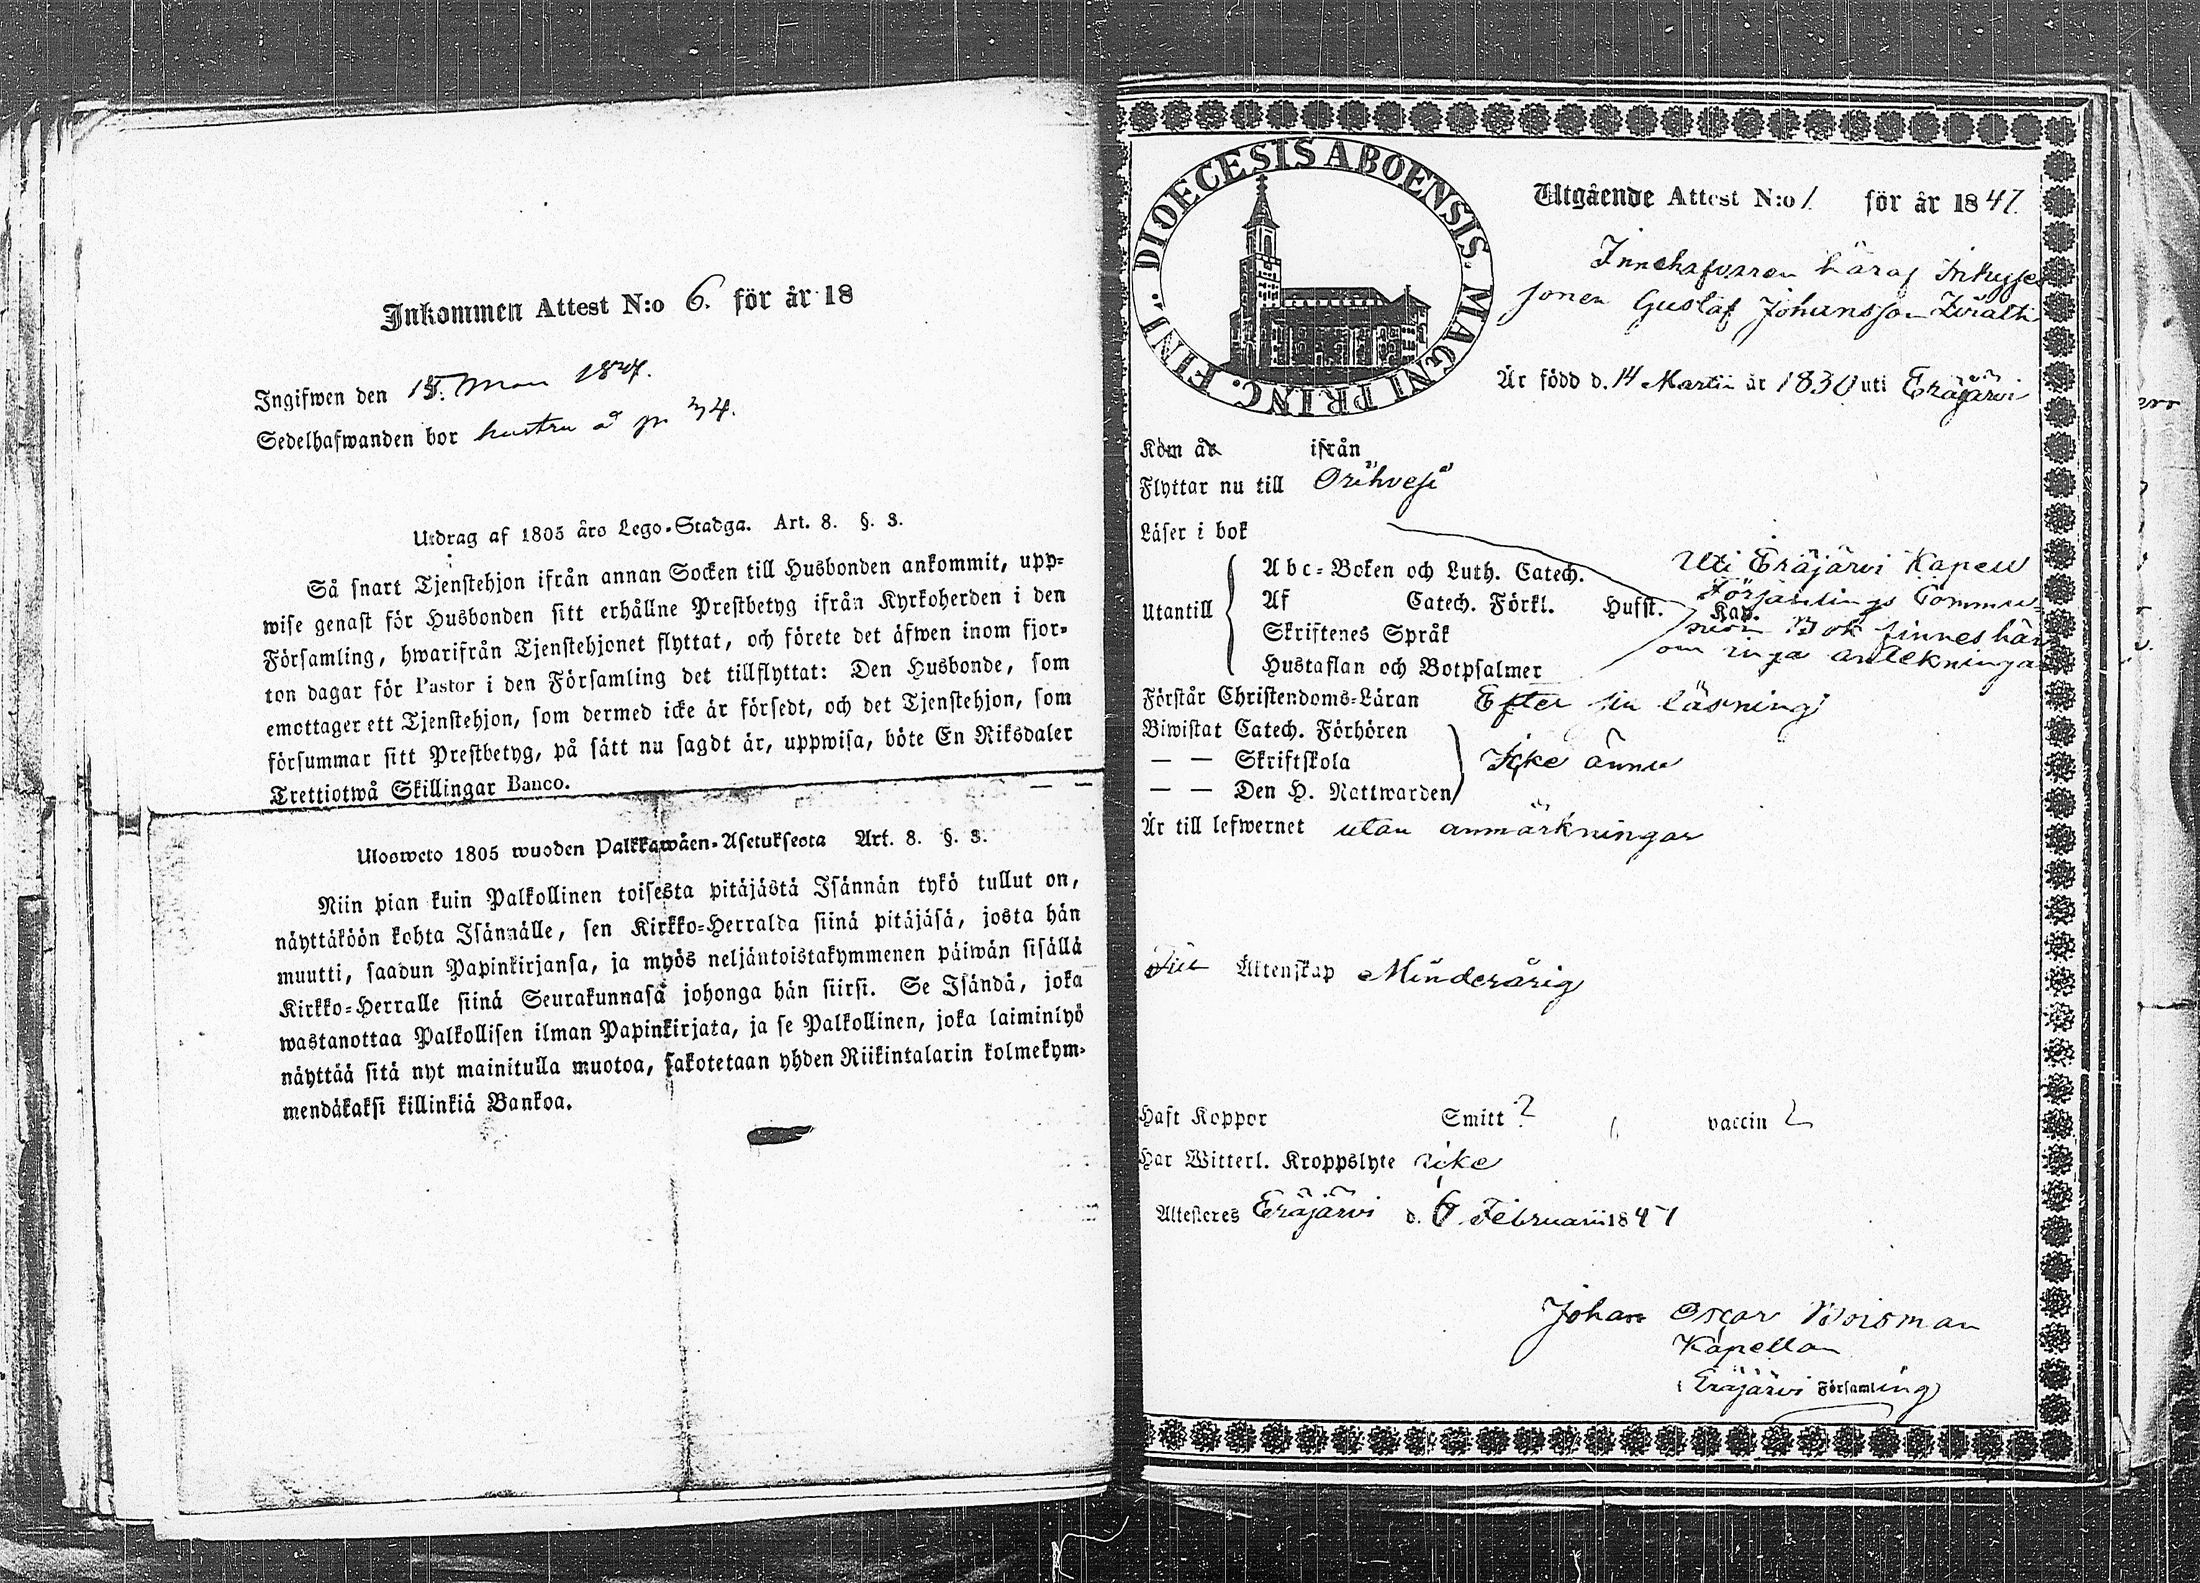 Inkommen Attest N:o 6. för år 18
Ingifwen den 15. 1847.
Sedelhafwanden bor
Utdrag af 1805 års Lego-Stadga. Art. 8. §. 3.
Så snart Tjenstehjon ifrån annan Socken till Husbonden ankommit, upp-
wise genast för Husbonden sitt erhållne Prestbetyg ifrån Kyrkoherden i den
Församling, hwarifrån Tjenstehjonet flyttat, och förete det äfwen inom fjor-
ton dagar för Pastor i den Församling det tillflyttat: Den Husbonde, som
emottager ett Tjenstehjon, som dermed icke är försedt, och det Tjenstehjon, som
försummar sitt Prestbetyg, på sätt nu sagdt är, uppwisa, böte En Riksdaler
Trettiotwå Skillingar Banco.
Ulosweto 1805 wuoden Palkkawäen-Asetuksesta Art. 8. §. 3.
Niin pian kuin Palkollinen toisesta pitäjästä Isännän tykö tullut on,
näyttäköön kohta Isännälle, sen Kirkko-Herralda siinä pitäjäsä, josta hän
muutti, saadun Papinkirjansa, ja myös neljäntoistakymmenen päiwän sisällä
Kirkko-Herralle siinä Seurakunnasa johonga hän siirsi. Se Isändä, joka
wastanottaa Palkollisen ilman Papinkirjata, ja se Palkollinen, joka laiminlyö
näyttää sitä nyt mainitulla muotoa, sakotetaan yhden Riikintalarin kolmekym-
mendäkaksi killinkiä Bankoa.
DIOECESIS ABOENSIS. MAGNI PRINC. FINL.
Utgående Attest N:o 1. för år 1847.
Innehafvaren häraf
sonen Gustaf Johansson
Är född d. 14 Martii år 1830 uti Eräjärvi
Kom år ifrån
Flyttar nu till Orihvesi
Läser i bok
Uti Eräjärvi Kapell
Abc-Boken och Luth. Catech.
Församlings Commu-
Utantill Af Catech. Förkl. Hufst. Kap.
nion Bok finnes här
Skriftenes Språk
om inga anteckningar
Hustaflan och Botpsalmer
Förstår Christendoms-Läran Efter sin läsning
Biwistat Catech. Förhören
— — Skriftskola Icke ännu
— — Den H. Nattwarden
Är till lefwernet utan anmärkningar
Till Äktenskap Minderårig
Haft Koppor Smitt ? vaccin ?
Har Witterl. Kroppslyte icke
Attesteres Eräjärvi d. 6. Februarii 1847
Johan Oscar Woisman
Kapellan
i Eräjärvi Församling